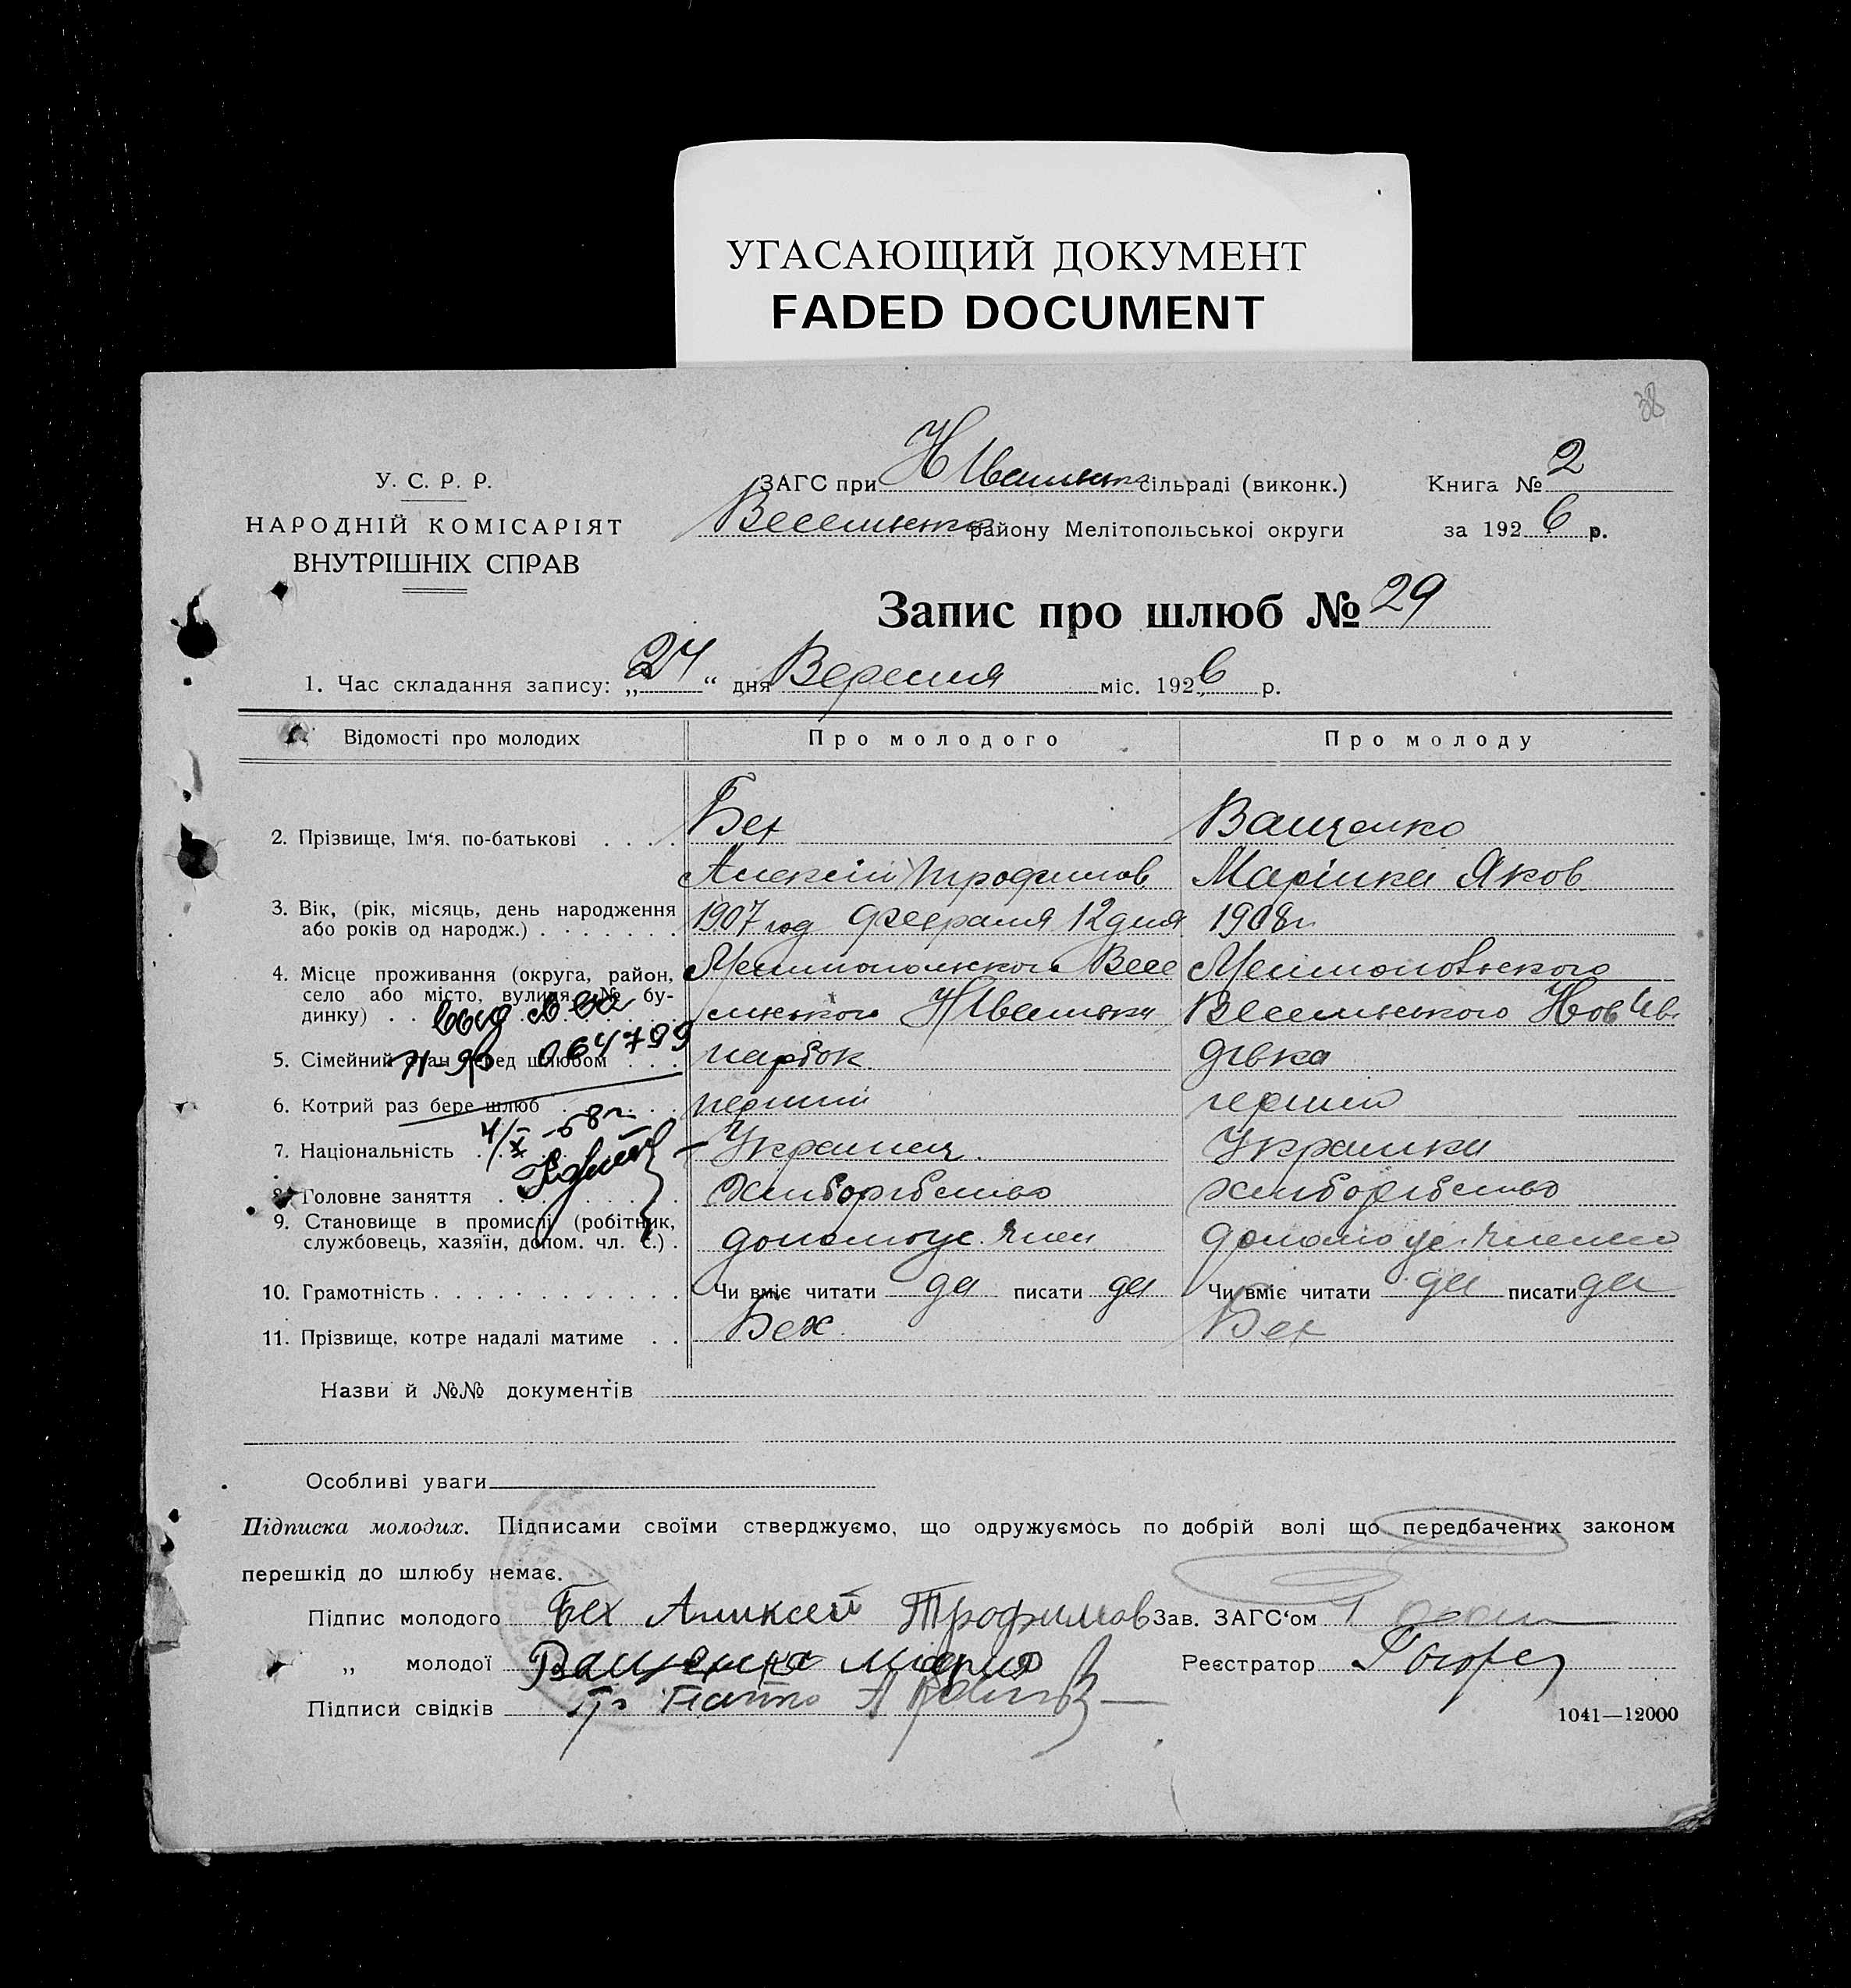 УГАСАЮЩИЙ ДОКУМЕНТ
FADED DOCUMENT
38
У. С. Р. Р.
НАРОДНІЙ КОМІСАРІЯТ
ВНУТРІШНІХ СПРАВ
ЗАГС при Н Іванівськ сільраді (виконк.)
Веселівськ району Мелітопольської округи
Книга № 2
за 1926 р.
Запис про шлюб № 29
1. Час складання запису: „24“ дня Вересня міс. 1926 р.
Відомості про молодих Про молодого Про молоду
2. Прізвище, Ім‘я. по-батькові . . . . Бех Ващенко
Алексій Трофимов Марійка Яков
3. Вік, (рік, місяць, день народження
або років од народж.) . . . . . . . 1907 год февраля 12 дня 1908 г.
4. Місце проживання (округа, район,
село або місто, вулиця, № бу-
динку) . .
Мелитопольского Весе Мелитопольского
лівського НІванівка Веселівського Нов Ів.
5. Сімейний стан перед шлюбом . . . парубок дівка
064799
6. Котрий раз бере шлюб . . . . перший перший
4/X-58 г.
7. Національність . . . Українец Українка
8. Головне заняття . . . . . . . Хліборобство хліборобство
9. Становище в промислі (робітник,
службовець, хазяїн, допом. чл. с.) . допомогає член допомогає
10. Грамотність . . . . . . . . . . . . Чи вміє читати да писати да Чи вміє читати да писати да
11. Прізвище, котре надалі матиме . . Бех Бех
Назви й №№ документів
Особливі уваги
Підписка молодих. Підписами своїми стверджуємо, що одружуємось по добрій волі що передбачених законом
перешкід до шлюбу немає.
Підпис молодого Бех Аликсей Трофимов Зав. ЗАГС‘ом
„ молодої Ващенко Мария Реєстратор
Підписи свідків
1041—12000